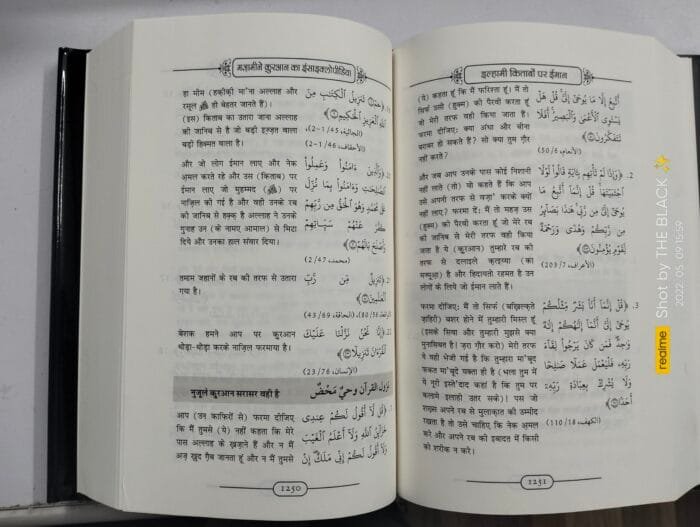 मज़ामीने क़ुरआन का इंसाइक्लोपीडिया
हा मीम (हक़ीक़ी मा'ना अल्लाह और
रसूल ﷺ ही बेहतर जानते हैं)।
(इस) किताब का उतारा जाना अल्लाह
की जानिब से है जो बड़ी इज़्ज़त वाला
बड़ी हिक्मत वाला है।
حٰمٓ ۝ تَنْزِيْلُ الْكِتٰبِ مِنَ
اللّٰهِ الْعَزِيْزِ الْحَكِيْمِ ۝
(الجاثية، 45/1-2)
(الأحقاف، 46/1-2)
और जो लोग ईमान लाए और नेक
अ़मल करते रहे और उस (किताब) पर
ईमान लाए जो मुहम्मद (ﷺ) पर
नाज़िल की गई है और वही उनके रब
की जानिब से हक़ है अल्लाह ने उनके
गुनाह उन (के नामए आमाल) से मिटा
दिये और उनका हाल संवार दिया।
وَالَّذِيْنَ ءَامَنُوْا وَعَمِلُوْا
الصّٰلِحٰتِ وَءَامَنُوْا بِمَا نُزِّلَ
عَلٰى مُحَمَّدٍ وَّهُوَ الْحَقُّ مِنْ رَّبِّهِمْ
كَفَّرَ عَنْهُمْ سَيِّاٰتِهِمْ
وَأَصْلَحَ بَالَهُمْ ۝
(محمد، 47/2)
तमाम जहानों के रब की तरफ़ से उतारा
गया है।
تَنْزِيْلٌ مِّنْ رَّبِّ
الْعٰلَمِيْنَ ۝
(الواقعة، 56/80)، (الحاقة، 69/43)
बेशक हमने आप पर क़ुरआन
थोड़ा-थोड़ा करके नाज़िल फ़रमाया है।
إِنَّا نَحْنُ نَزَّلْنَا عَلَيْكَ
الْقُرْاٰنَ تَنْزِيْلًا ۝
(الإنسان، 76/23)
नुज़ूले क़ुरआन सरासर वही है
نزول القرآن وحيٌ مَحْضٌ
आप (उन काफिरों से) फ़रमा दीजिए
कि मैं तुमसे (ये) नहीं कहता कि मेरे
पास अल्लाह के ख़ज़ाने हैं और न मैं
अज़ ख़ुद ग़ैब जानता हूं और न मैं तुमसे
قُلْ لَّآ أَقُوْلُ لَكُمْ عِنْدِيْ
خَزَآئِنُ اللّٰهِ وَلَآ أَعْلَمُ الْغَيْبَ
وَلَآ أَقُوْلُ لَكُمْ إِنِّيْ مَلَكٌ إِنْ
1250
इल्हामी किताबों पर ईमान
(ये) कहता हूं कि मैं फ़रिश्ता हूं। मैं तो
सिर्फ़ उसी (हुक्म) की पैरवी करता हूं
जो मेरी तरफ़ वही किया जाता है।
फ़रमा दीजिए: क्या अंधा और बीना
बराबर हो सकते हैं? सो क्या तुम ग़ौर
नहीं करते?
أَتَّبِعُ إِلَّا مَا يُوْحٰٓى إِلَيَّ قُلْ هَلْ
يَسْتَوِي الْأَعْمٰى وَالْبَصِيْرُ أَفَلَا
تَتَفَكَّرُوْنَ ۝
(الأنعام، 6/50)
और जब आप उनके पास कोई निशानी
नहीं लाते (तो) वो कहते हैं कि आप
उसे अपनी तरफ़ से वज़ा' करके क्यों
नहीं लाए? फ़रमा दें: मैं तो महज़ उस
(हुक्म) की पैरवी करता हूं जो मेरे रब
की जानिब से मेरी तरफ़ वही किया
जाता है ये (क़ुरआन) तुम्हारे रब की
तरफ़ से दलाइले क़त्इय्या (का
मज्मूआ़) है और हिदायतो रहमत है उन
लोगों के लिये जो ईमान लाते हैं।
2. وَإِذَا لَمْ تَأْتِهِمْ بِاٰيَةٍ قَالُوْا لَوْلَا
اجْتَبَيْتَهَا قُلْ إِنَّمَآ أَتَّبِعُ مَا
يُوْحٰٓى إِلَيَّ مِنْ رَّبِّيْ هٰذَا بَصَآئِرُ
مِنْ رَّبِّكُمْ وَهُدًى وَّرَحْمَةٌ
لِّقَوْمٍ يُّؤْمِنُوْنَ ۝
(الأعراف، 7/203)
फ़रमा दीजिए: मैं तो सिर्फ़ (बख़िल्क़ते
ज़ाहिरी) बशर होने में तुम्हारी मिस्ल हूं
(इसके सिवा और तुम्हारी मुझसे क्या
मुनासिबत है! ज़रा ग़ौर करो) मेरी तरफ़
ये वही भेजी गई है कि तुम्हारा मा'बूद
फ़क़त मा'बूदे यक्ता ही है (भला तुम में
ये नूरी इस्ते'दाद कहां है कि तुम पर
कलामे इलाही उतर सके)। पस जो
शख़्स अपने रब से मुलाक़ात की उम्मीद
रखता है तो उसे चाहिए कि नेक अ़मल
करे और अपने रब की इबादत में किसी
को शरीक न करे।
3. قُلْ إِنَّمَآ أَنَا بَشَرٌ مِّثْلُكُمْ
يُوْحٰٓى إِلَيَّ أَنَّمَآ إِلٰهُكُمْ إِلٰهٌ
وَّاحِدٌ فَمَنْ كَانَ يَرْجُوْا لِقَآءَ
رَبِّهٖ فَلْيَعْمَلْ عَمَلًا صٰلِحًا
وَّلَا يُشْرِكْ بِعِبَادَةِ رَبِّهٖٓ
أَحَدًا ۝
(الكهف، 18/110)
1251
realme
Shot by THE BLACK
2022.05.09 15:59